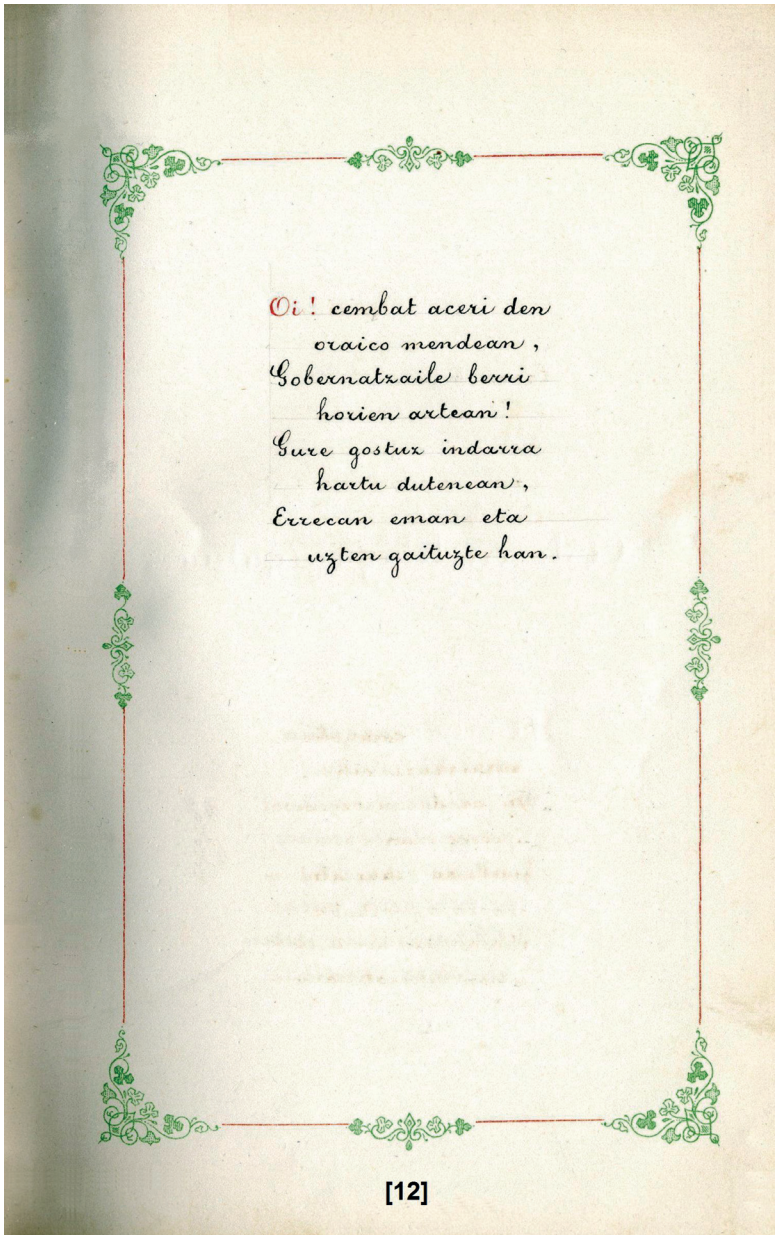 Oi! cembat aceri den
oraico mendean,
Gobernatzaile berri
horien artean!
Gure gostuz indarra
hartu dutenean,
Errecan eman eta
uzten gaituzte han.
[12]